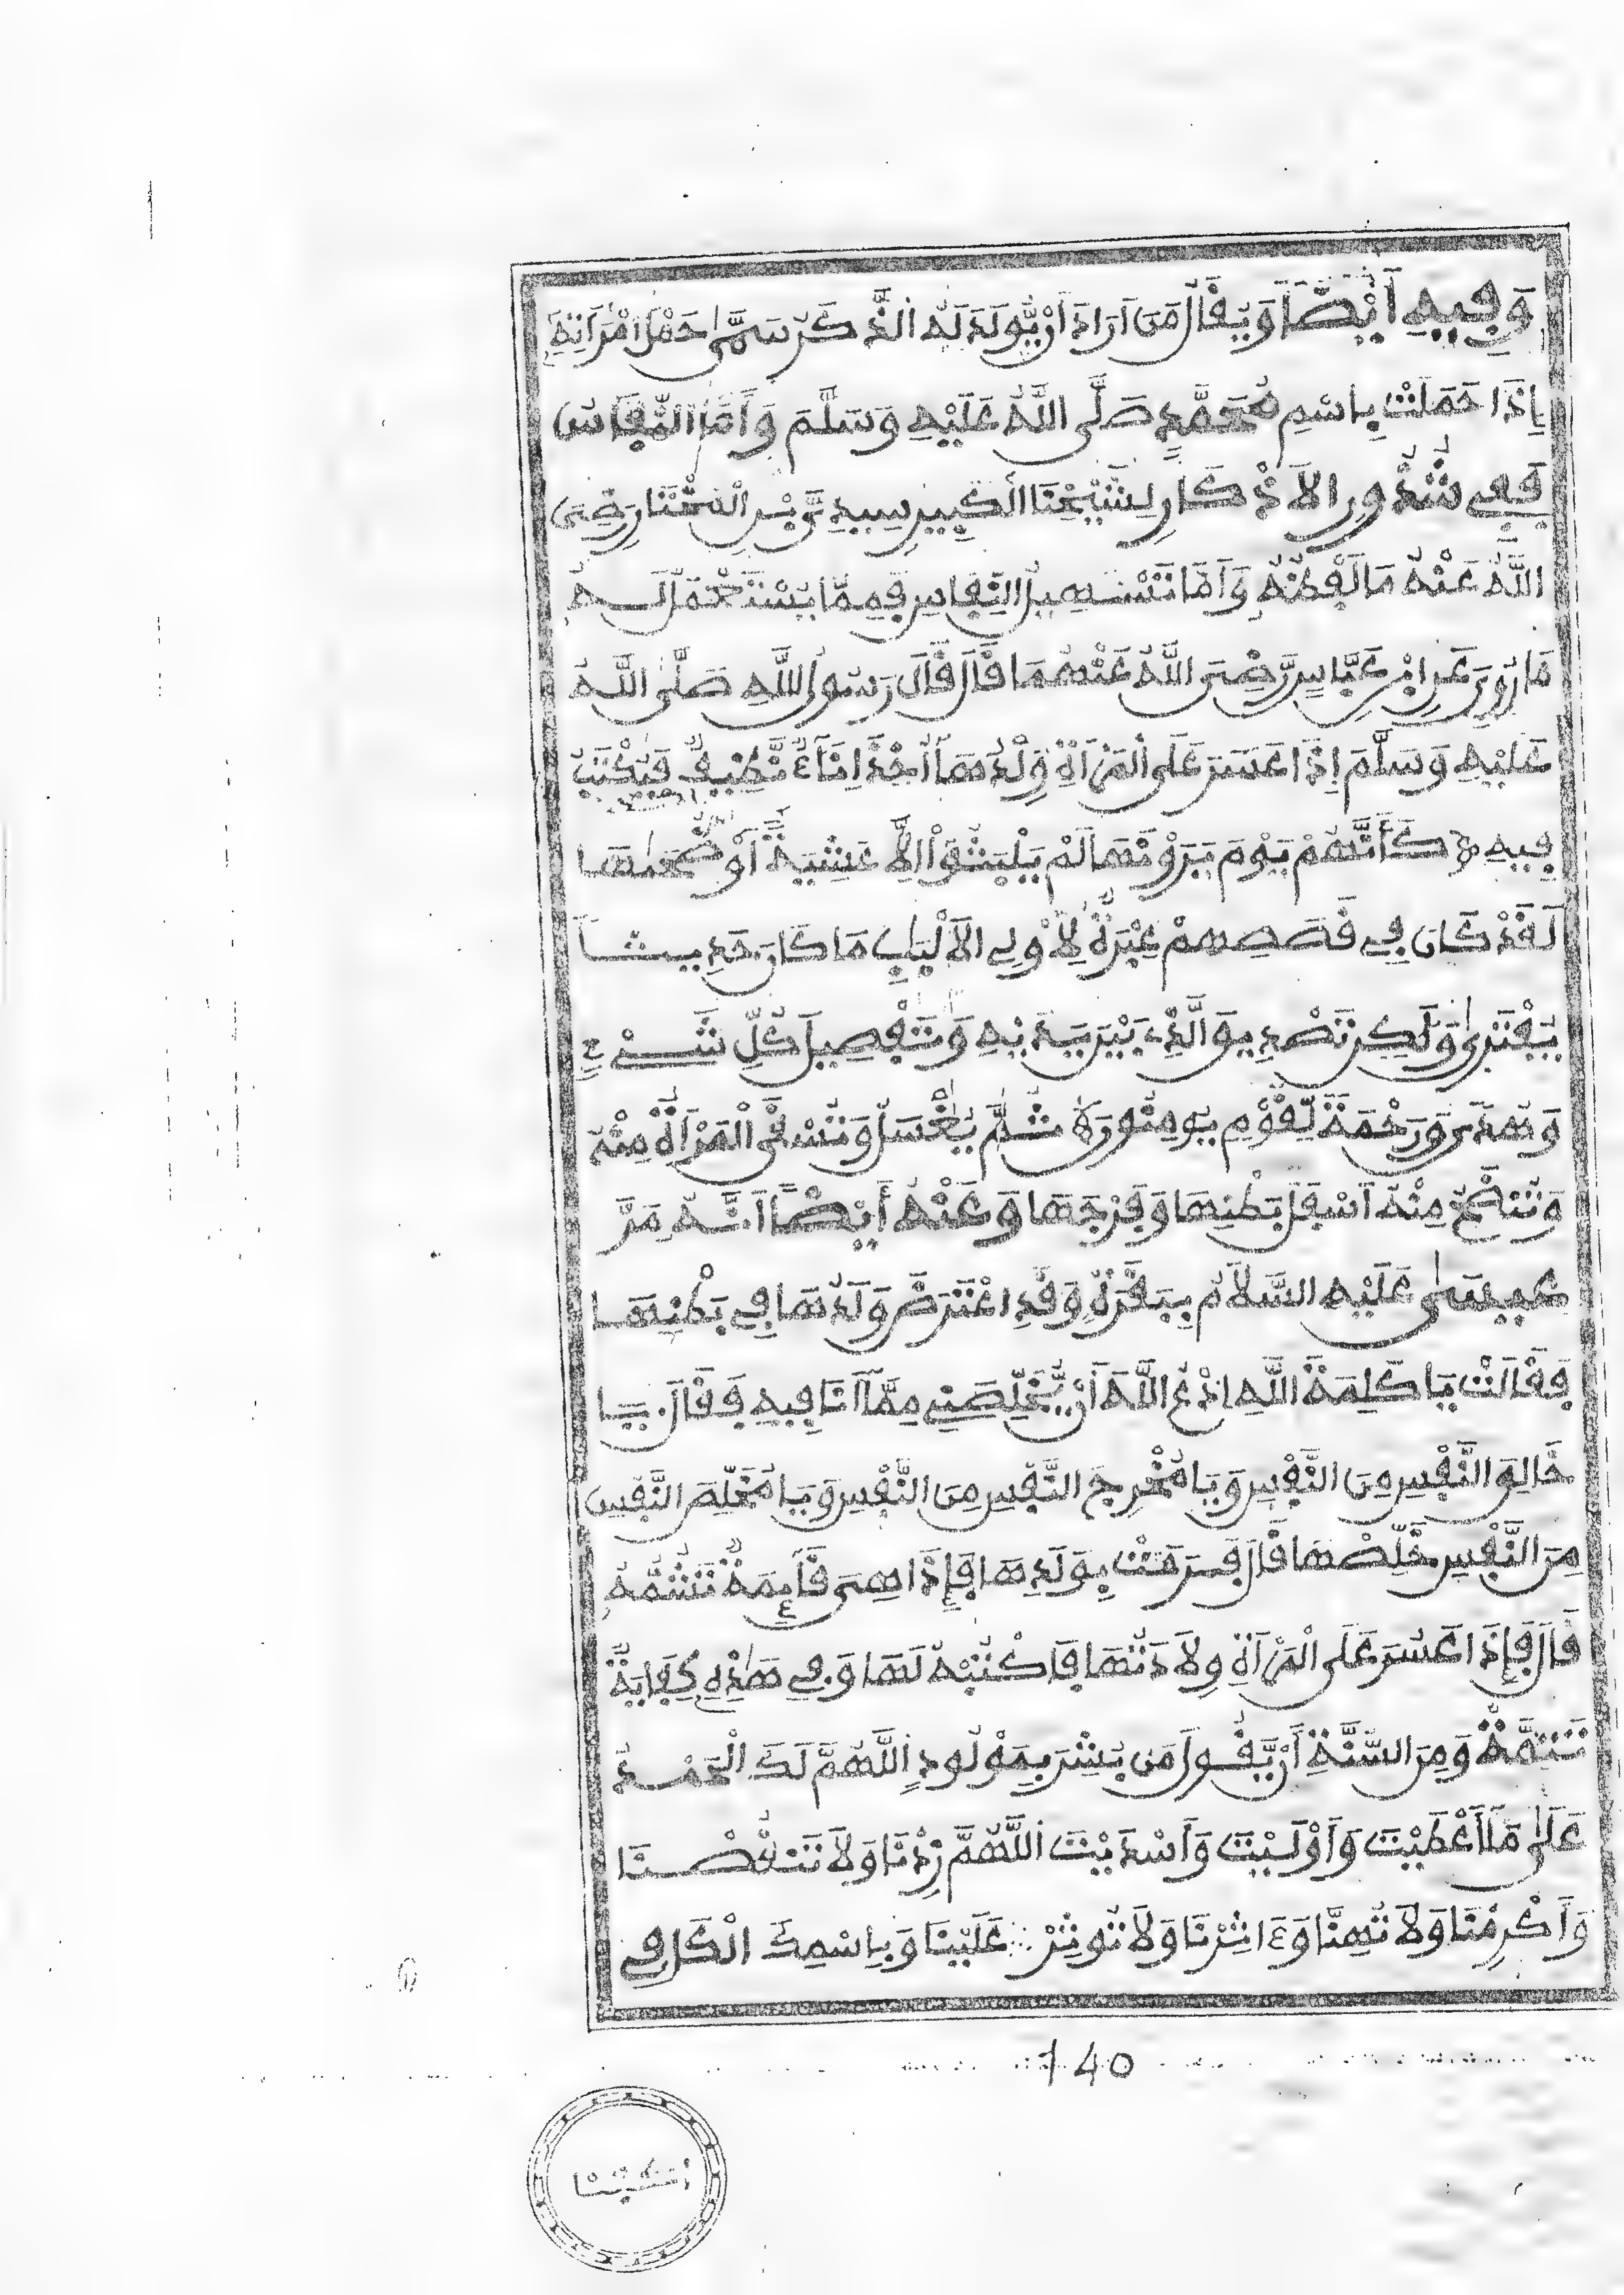 وَفِيهِ أَيْضًا وَيُقَالُ مَنَ اَرَادَ أَنْ يُّولَدَ لَهُ الذَّكَرُ سَمَّى حَمْلَ امْرَأَتِهِ
إِذَا حَمَلَتْ بِاسْمِ مُحَمَّدٍ صَلَّى اللَّهُ عَلَيْهِ وَسَلَّمَ وَأَمَّا النِّفَاسُ
فَفِي شُذُورِ الاَذْكَارِ لِشَيْخِنَا الْكَبِيرِ سِيدِ بْنِ الْمُخْتَارِ رَضِىَ
اللَّهُ عَنْهُ مَا لَفْظُهُ وَأَمَّا تَسْهِيلُ النِّفَاسِ فَمِمَّا يُسْتَعْمَلُ لَهُ
مَا رُوِىَ عَنِ ابْنِ عَبَّاسٍ رَّضِىَ اللَّهُ عَنْهُمَا قَالَ قَالَ رَسُولُ اللَّهِ صَلَّى اللَّهُ
عَلَيْهِ وَسَلَّمَ إِذَا عَسُرَ عَلَى الْمَرْأَةِ وَلَدُهَا أُخِذَ إِنَاءٌ نَّظِيفٌ فَيُكْتَبُ
فِيهِ كَأَنَّهُمْ يَوْمَ يَرَوْنَهَا لَمْ يَلْبَثُواْ إِلاَّ عَشِيَّةً أَوْ ضُحَىٰهَا
لَقَدْ كَانَ فِي قَصَصِهِمْ عِبْرَةٌ لِأُوْلِي الاَلْبَٰبِ مَا كَانَ حَدِيثاً
يُفْتَرَىٰ وَلَٰكِن تَصْدِيقَ الَّذِي بَيْنَ يَدَيْهِ وَتَفْصِيلَ كُلِّ شَيْءٍ
وَهُدىً وَرَحْمَةً لِّقَوْمٍ يُومِنُونَ ثُمَّ يُغْسَلُ وَتُسْقَى الْمَرْأَةُ مِنْهُ
وَتُنْضَحُ مِنْهُ أَسْفَلُ بَطْنِهَا وَفَرْجَهَا وَعَنْهُ أَيْضًا أَنَّهُ مَرَّ
عِيسَى عَلَيْهِ السَّلاَمُ بِبَقَرَةٍ وَقَدِ اعْتَرَضَ وَلَدُهَا فِي بَطْنِهَا
فَقَالَتْ يَا كَلِمَةَ اللَّهِ ادْعُ اللَّهَ أَنْ يُّخَلِّصَنِي مِمَّا أَنَا فِيهِ فَقَالَ يَا
خَالِقَ النَّفْسِ مِنَ النَّفْسِ وَيَا مُخْرِجَ النَّفْسِ مِنَ النَّفْسِ وَيَا مُخَلِّصَ النَّفْسِ
مِنَ النَّفْسِ خَلِّصْهَا قَالَ فَرَمَتْ بِوَلَدِهَا فَإِذَا هِىَ قَائِمَةٌ تَشُمُّهُ
قَالَ فَإِذَا عَسُرَ عَلَى الْمَرْأَةِ وِلاَدَتُهَا فَاكْتُبْهُ لَهَا وَفِي هَٰذِهِ كِفَايَةٌ
تَتِمَّةٌ وَمِنَ السُّنَّةِ أَنْ يَّقُولَ مَن بُشِّرَ بِمَوْلُودٍ اللَّهُمَّ لَكَ الْحَمْدُ
عَلَىٰ مَا أَعْطَيْتَ وَأَوْلَيْتَ وَأَسْدَيْتَ اللَّهُمَّ زِدْنَا وَلاَ تَنْقُصْنَا
وَأَكْرِمْنَا وَلاَ تُهِنَّا وَءَاثِرْنَا وَلاَ تُوثِرْ عَلَيْنَا وَبِاسْمِكَ الْكَافِي
140